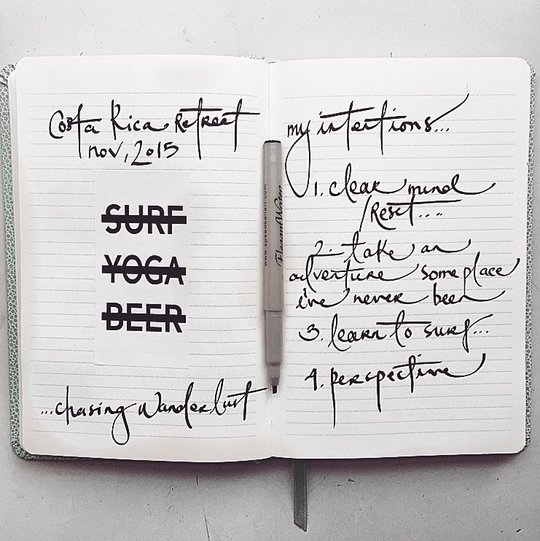 Costa Rica Retreat
nov, 2015
SURF
YOGA
BEER
...chasing Wanderlust
my intentions...
1. clear mind
/Reset....
2. take an
adventure someplace
i've never been
3. learn to surf...
4. perspective